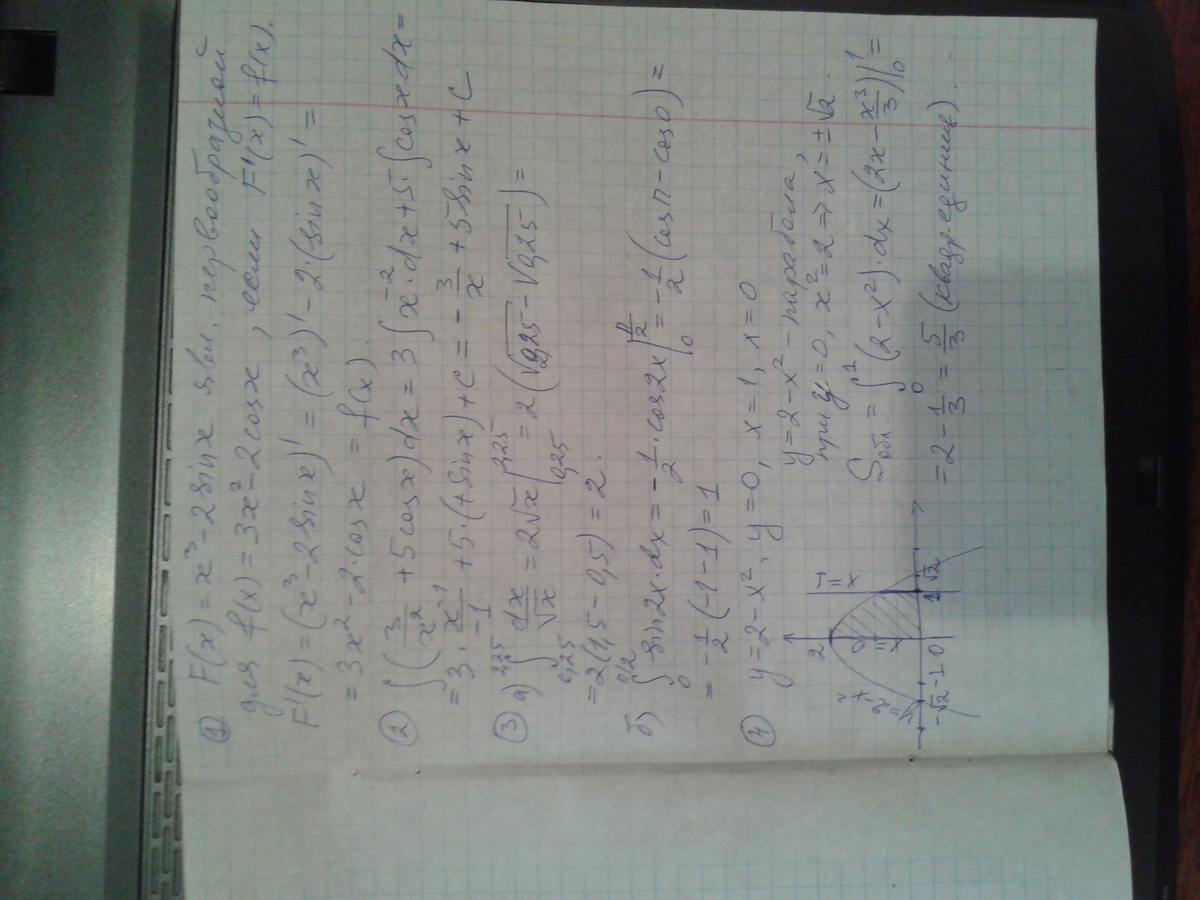 ① F(x) = x³ - 2 sin x явл. первообразной
для f(x) = 3x² - 2cos x, если F'(x) = f(x).
F'(x) = (x³ - 2 sin x)' = (x³)' - 2·(sin x)' =
= 3x² - 2·cos x = f(x).
② ∫(3/x² + 5cos x)dx = 3∫x⁻²·dx + 5·∫cos x dx =
= 3·x⁻¹/-1 + 5·(+sin x) + C = -3/x + 5 sin x + C
③ а) ∫_{0,25}^{2,25} dx/√x = 2√x |_{0,25}^{2,25} = 2(√2,25 - √0,25) =
= 2(1,5 - 0,5) = 2.
б) ∫_0^{π/2} sin 2x·dx = -1/2·cos 2x |_0^{π/2} = -1/2(cos π - cos 0) =
= -1/2(-1-1) = 1
④ y = 2 - x², y = 0, x = 1, x = 0
y = 2 - x² - парабола,
при y = 0, x² = 2 => x = ±√2.
S обл. = ∫_0^1 (2 - x²)·dx = (2x - x³/3)|_0^1 =
= 2 - 1/3 = 5/3 (квадр. единиц).
2
x = 1
-√2 -1 0 1 √2